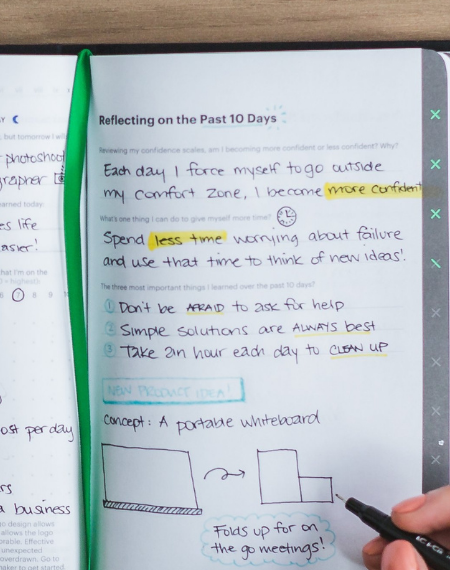 Y
, but tomorrow I will
photoshoot
grapher
arned today:
es life
asier!
hat I'm on the
= highest)
6 7 8 9
ost per day
rs
a business
to design allows
allows the logo
orable. Effective
unexpected
overdrawn. Go to
maker to get started.
Reflecting on the Past 10 Days
Reviewing my confidence scales, am I becoming more confident or less confident? Why?
Each day I force myself to go outside
my comfort zone, I become more confident
What's one thing I can do to give myself more time?
Spend less time worrying about failure
and use that time to think of new ideas!
The three most important things I learned over the past 10 days?
1 Don't be AFRAID to ask for help
2 Simple solutions are ALWAYS best
3 Take an hour each day to CLEAN UP
NEW PRODUCT IDEA!
concept: A portable whiteboard
Folds up for on
the go meetings!